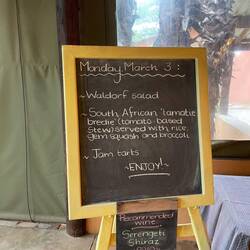 Monday March 3:
~ Waldorf salad
~ South African 'tamatie
bredie' (tomato based
stew) served with rice,
gem squash and broccoli.
~ Jam tarts
~ENJOY!~
Recommended
wine
Serengeti
Shiraz